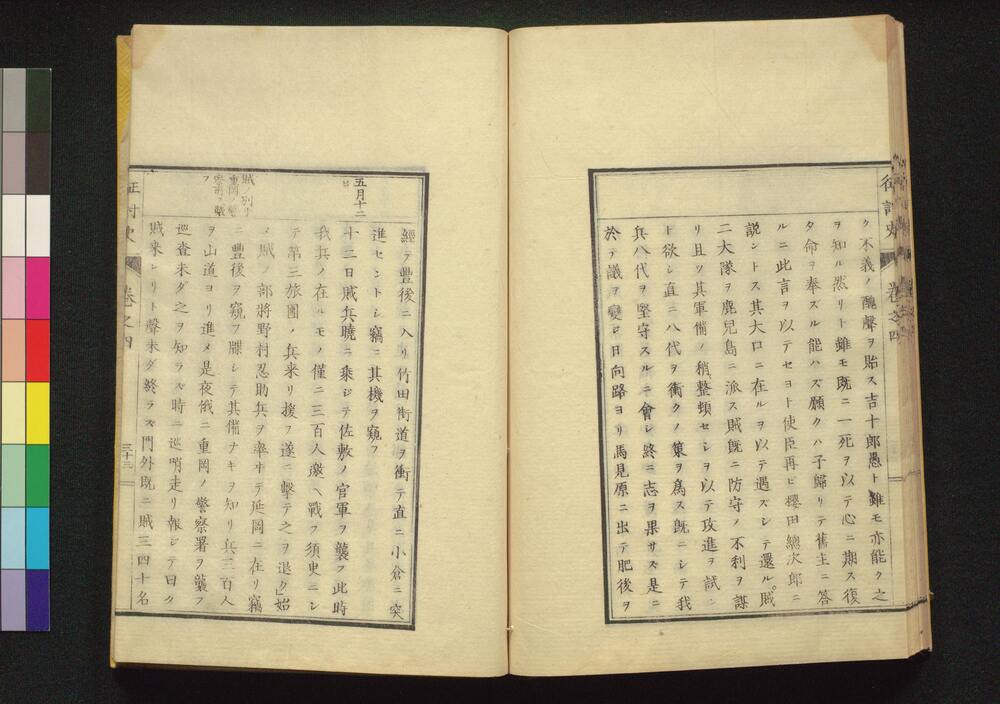 征討史
卷之四
ク不義ノ醜聲ヲ貽ス吉十郎愚ト雖モ亦能ク之
ヲ知ル然リト雖モ既ニ一死ヲ以テ心ニ期ス復
タ命ヲ奉ズル能ハズ願クハ子歸リテ舊主ニ答
ルニ此言ヲ以テセヨト使臣再ビ櫻田總次郎ニ
説ントス其大口ニ在ルヲ以テ遇ズシテ還ル賊
二大隊ヲ鹿兒島ニ派ス賊既ニ防守ノ不利ヲ謀
リ且ツ其軍備ノ稍整頓セシヲ以テ攻進ヲ試ニ
ト欲シ直ニ八代ヲ衝クノ策ヲ爲ス既ニシテ我
兵八代ヲ堅守スルニ會シ終ニ志ヲ果サズ是ニ
於テ議ヲ變じ日向路ヨリ馬見原ニ出テ肥後ヲ
經テ豐後ニ入リ竹田街道ヲ衝テ直ニ小倉ニ突
進セントシ竊ニ其機ヲ窺フ
五月十二日
十二日賊兵曉ニ乘ジテ佐敷ノ官軍ヲ襲フ此時
我兵ノ在ルモノ僅ニ三百人邀ヘ戰フ須臾ニシ
テ第三旅團ノ兵来リ援フ遂ニ擊テ之ヲ退ク始
メ賊ノ部將野村忍助兵ヲ率ヰテ延岡ニ在リ竊
賊ノ別リ
重岡ノ警
察署ヲ襲
フ
ニ豐後ヲ窺フ牒シテ其備ナキヲ知リ兵三百人
ヲ山道ヨリ進メ是夜俄ニ重岡ノ警察署ヲ襲フ
巡査未ダ之ヲ知ラズ時ニ巡哨走リ報ジテ曰ク
賊来レリト聲未ダ終ラズ門外既ニ賊三四十名
征討史
卷之四
三十三